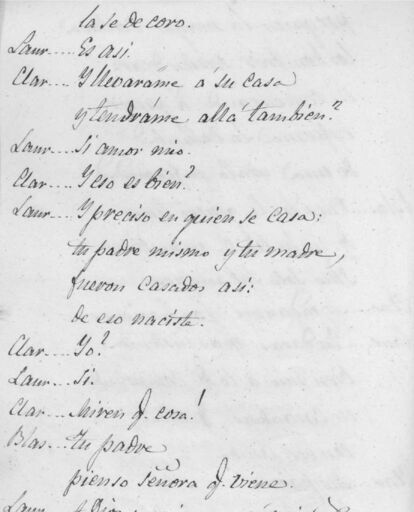 la se de coro.
Laur.... Es asi.
Clar.... Y llevaráme á su casa
y tendráme allá tambien?
Laur.... Si amor mio.
Clar.... Y eso es bien?
Laur.... Y preciso en quien se casa:
tu padre mismo y tu madre,
fueron casados asi:
de eso naciste.
Clar.... Yo?
Laur.... Si.
Clar.... Miren q. cosa!
Blas... Tu padre
pienso señora q. viene.
Laur....